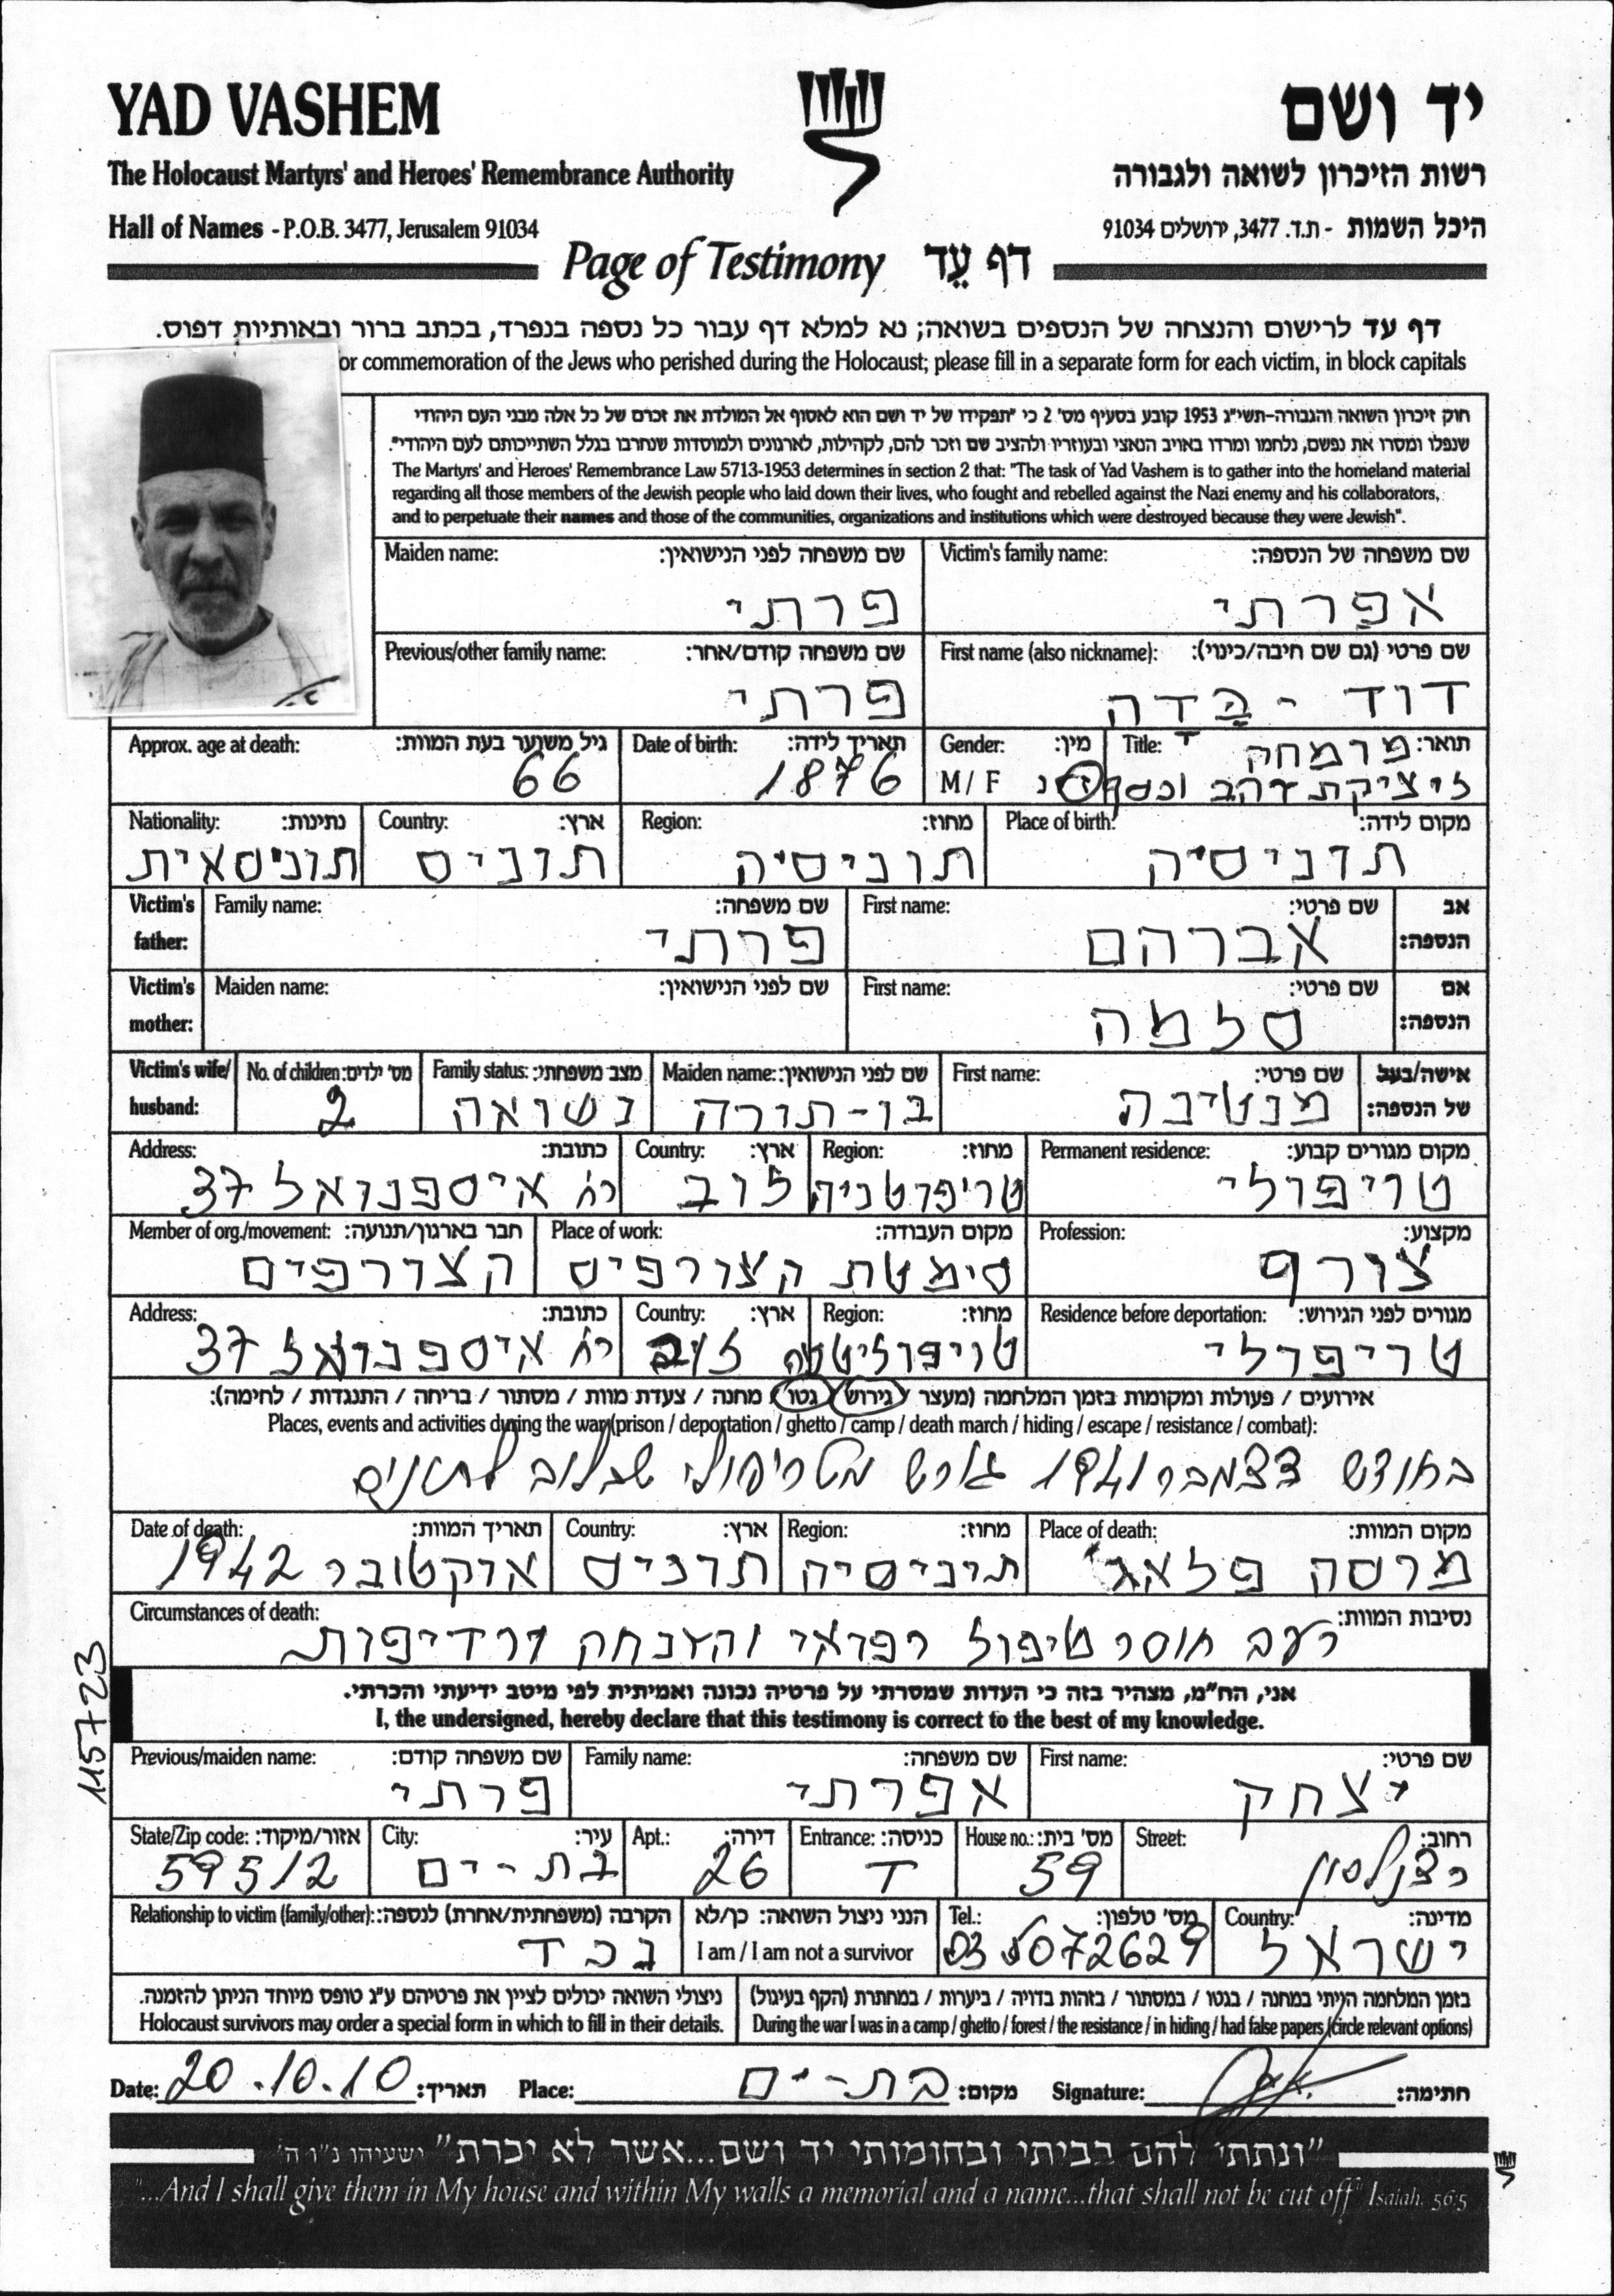 YAD VASHEM
יד ושם
The Holocaust Martyrs' and Heroes' Remembrance Authority
רשות הזיכרון לשואה ולגבורה
Hall of Names - P.O.B. 3477, Jerusalem 91034
היכל השמות - ת.ד. 3477, ירושלים 91034
Page of Testimony דף עֵד
דף עד לרישום והנצחה של הנספים בשואה; נא למלא דף עבור כל נספה בנפרד, בכתב ברור ובאותיות דפוס.
or commemoration of the Jews who perished during the Holocaust; please fill in a separate form for each victim, in block capitals
חוק זיכרון השואה והגבורה-תשי"ג 1953 קובע בסעיף מס' 2 כי "תפקידו של יד ושם הוא לאסוף אל המולדת את זכרם של כל אלה מבני העם היהודי
שנפלו ומסרו את נפשם, נלחמו ומרדו באויב הנאצי ובעוזריו ולהציב שם וזכר להם, לקהילות, לארגונים ולמוסדות שנחרבו בגלל השתייכותם לעם היהודי".
The Martyrs' and Heroes' Remembrance Law 5713-1953 determines in section 2 that: "The task of Yad Vashem is to gather into the homeland material
regarding all those members of the Jewish people who laid down their lives, who fought and rebelled against the Nazi enemy and his collaborators,
and to perpetuate their names and those of the communities, organizations and institutions which were destroyed because they were Jewish".
Victim's family name: שם משפחה של הנספה:
אפרתי
Maiden name: שם משפחה לפני הנישואין:
פרתי
First name (also nickname): שם פרטי (גם שם חיבה/כינוי):
דוד - דדה
Previous/other family name: שם משפחה קודם/אחר:
פרתי
Title: תואר: מומחה
ליציקת זהב וכסף
Gender: מין:
M / F ז נ
Date of birth: תאריך לידה:
1876
Approx. age at death: גיל משוער בעת המוות:
66
Place of birth: מקום לידה:
תוניסיה
Region: מחוז:
תוניסיה
Country: ארץ:
תוניס
Nationality: נתינות:
תוניסאית
Victim's father: אב הנספה:
First name: שם פרטי:
אברהם
Family name: שם משפחה:
פרתי
Victim's mother: אם הנספה:
First name: שם פרטי:
סלמה
Maiden name: שם לפני הנישואין:
Victim's wife/ husband: אישה/בעל של הנספה:
First name: שם פרטי:
מנטינה
Maiden name: שם לפני הנישואין:
בו-תורה
Family status: מצב משפחתי:
נשואה
No. of children: מס' ילדים:
2
Permanent residence: מקום מגורים קבוע:
טריפולי
Region: מחוז:
טריפוטניה
Country: ארץ:
לוב
Address: כתובת:
רח' איספנואל 37
Profession: מקצוע:
צורף
Place of work: מקום העבודה:
סימטת הצורפים
Member of org./movement: חבר בארגון/תנועה:
הצורפים
Residence before deportation: מגורים לפני הגירוש:
טריפולי
Region: מחוז:
Country: ארץ:
לוב
Address: כתובת:
רח' איספנואל 37
אירועים / פעולות ומקומות בזמן המלחמה (מעצר / גירוש / גטו / מחנה / צעדת מוות / מסתור / בריחה / התנגדות / לחימה):
Places, events and activities during the war (prison / deportation / ghetto / camp / death march / hiding / escape / resistance / combat):
בחודש דצמבר 1941 גורש מטריפולי שבלוב לתוניס
Place of death: מקום המוות:
מרסה פלאג'
Region: מחוז:
תוניסיה
Country: ארץ:
תוניס
Date of death: תאריך המוות:
אוקטובר 1942
Circumstances of death: נסיבות המוות:
רעב חוסר טיפול רפואי והזנחה ורדיפות
115723
אני, הח"מ, מצהיר בזה כי העדות שמסרתי על פרטיה נכונה ואמיתית לפי מיטב ידיעתי והכרתי.
I, the undersigned, hereby declare that this testimony is correct to the best of my knowledge.
First name: שם פרטי:
יצחק
Family name: שם משפחה:
אפרתי
Previous/maiden name: שם משפחה קודם:
פרתי
Street: רחוב:
כצנלסון
House no.: מס' בית:
59
Entrance: כניסה:
ד
Apt.: דירה:
26
City: עיר:
בת-ים
State/Zip code: אזור/מיקוד:
59512
Country: מדינה:
ישראל
Tel.: מס' טלפון:
03 5072629
הנני ניצול השואה: כן/לא
I am / I am not a survivor
Relationship to victim (family/other): הקרבה (משפחתית/אחרת) לנספה:
נכד
בזמן המלחמה הייתי במחנה / בגטו / במסתור / בזהות בדויה / ביערות / במחתרת (הקף בעיגול)
During the war I was in a camp / ghetto / forest / the resistance / in hiding / had false papers (circle relevant options)
ניצולי השואה יכולים לציין את פרטיהם ע"ג טופס מיוחד הניתן להזמנה.
Holocaust survivors may order a special form in which to fill in their details.
Date: 20.10.10 תאריך: Place: בת-ים מקום: Signature: חתימה:
"ונתתי להם בביתי ובחומותי יד ושם...אשר לא יכרת" ישעיהו נ"ו ה'
"...And I shall give them in My house and within My walls a memorial and a name...that shall not be cut off" Isaiah, 56:5